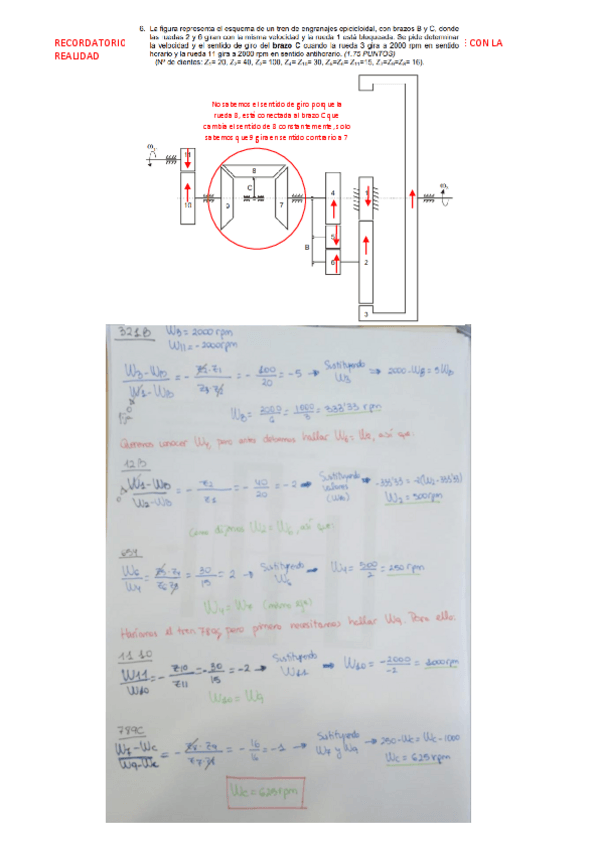 6. La figura representa el esquema de un tren de engranajes epicicloidal, con brazos B y C, donde
las ruedas 2 y 6 giran con la misma velocidad y la rueda 1 está bloqueada. Se pide determinar
RECORDATORIO
la velocidad y el sentido de giro del brazo C cuando la rueda 3 gira a 2000 rpm en sentido
E CON LA
REALIDAD
horario y la rueda 11 gira a 2000 rpm en sentido antihorario. (1.75 PUNTOS)
No sabemos el sentido de giro porque la
rueda 8, está conectada al brazo C que
cambia el sentido de 8 constantemente, solo
sabemos que 9 gira en sentido contrario a 7
11
8
C
4
1
10
9
7
5
B
6
2
3
321B
W3 = 2000 rpm
W11 = -2000 rpm
W3-WB / W1-WB = - Z2·Z1 / Z3·Z2 = - 100/20 = -5 → Sustituyendo W3 → 2000-WB = 5WB
WB = 2000/6 = 1000/3 = 333'33 rpm
Queremos conocer W4 pero antes debemos hallar W6 = W2, así que:
12B
W1-WB / W2-WB = - Z2/Z1 = - 40/20 = -2 → Sustituyendo valores (WB) → -333'33 = -2(W2-333'33)
W2 = 500 rpm
Como dijimos W2 = W6, así que:
654
W6/W4 = Z5·Z4 / Z6·Z5 = 30/15 = 2 → Sustituyendo W6 → W4 = 500/2 = 250 rpm
W4 = W7 (mismo eje)
Haríamos el tren 789C pero primero necesitamos hallar W9. Para ello:
11 10
W11/W10 = - Z10/Z11 = - 30/15 = -2 → Sustituyendo W11 → W10 = -2000/-2 = 1000 rpm
W10 = W9
789C
W7-WC / W9-WC = - Z8·Z9 / Z7·Z8 = - 16/16 = -1 → Sustituyendo W7 y W9 → 250-WC = WC-1000
WC = 625 rpm
WC = 625 rpm